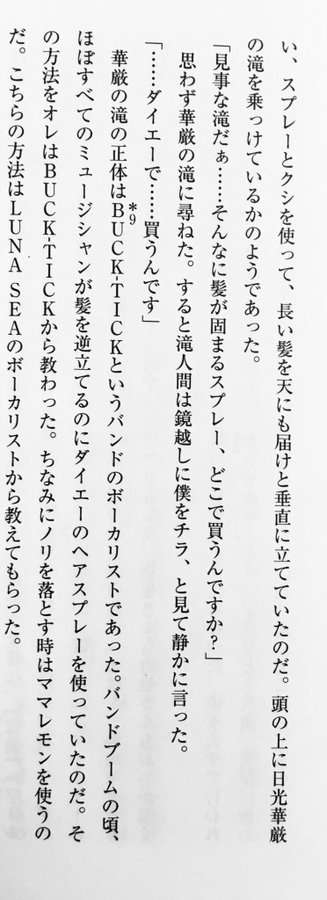 い、スプレーとクシを使って、長い髪を天にも届けと垂直に立てていたのだ。頭の上に日光華厳
の滝を乗っけているかのようであった。
「見事な滝だぁ……そんなに髪が固まるスプレー、どこで買うんですか?」
思わず華厳の滝に尋ねた。すると滝人間は鏡越しに僕をチラ、と見て静かに言った。
「……ダイエーで……買うんです」
華厳の滝の正体はBUCK-TICK*9というバンドのボーカリストであった。バンドブームの頃、
ほぼすべてのミュージシャンが髪を逆立てるのにダイエーのヘアスプレーを使っていたのだ。そ
の方法をオレはBUCK-TICKから教わった。ちなみにノリを落とす時はママレモンを使うの
だ。こちらの方法はLUNA SEAのボーカリストから教えてもらった。